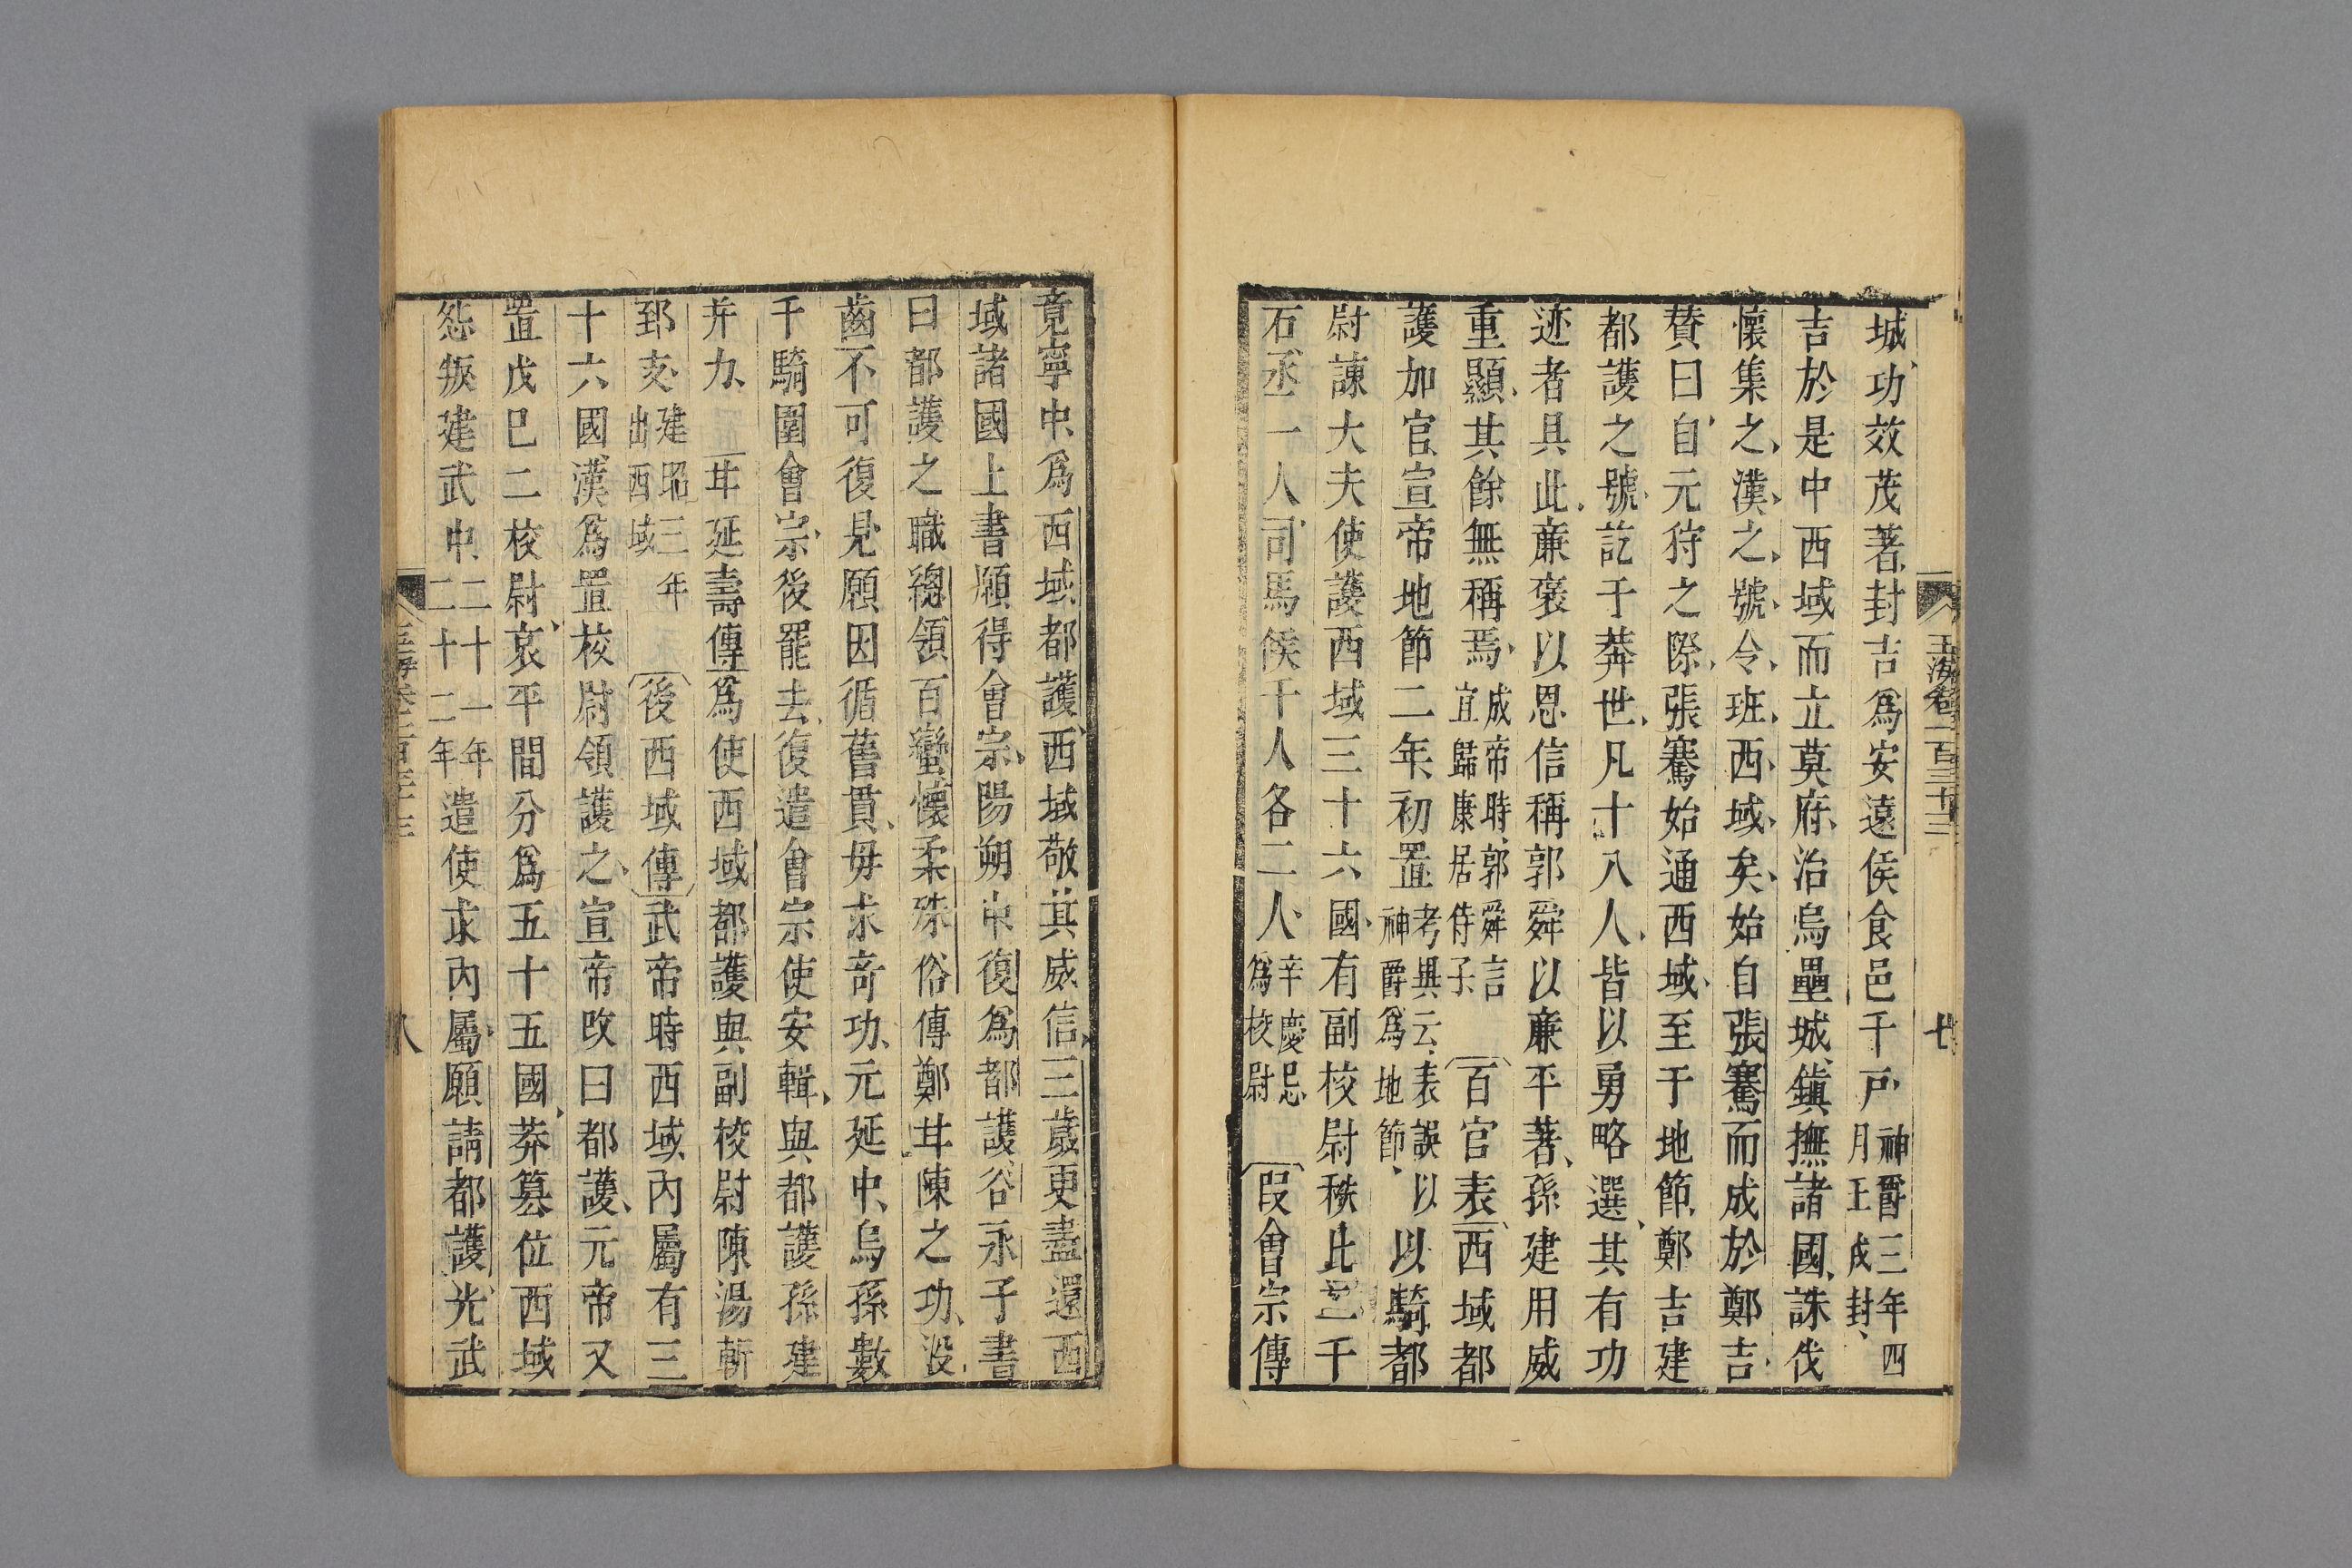 玉海卷一百三十三
七
城功效茂著封吉爲安遠侯食邑千戸神爵三年四月壬戌封
吉於是中西域而立莫府治烏壘城鎮撫諸國誅伐
懷集之漢之號令班西域矣始自張騫而成於鄭吉
賛曰自元狩之際張騫始通西域至于地節鄭吉建
都護之號訖于莽世凡十八人皆以勇略選其有功
迹者具此亷褒以恩信稱郭舜以亷平著孫建用威
重顯其餘無稱焉成帝時郭舜言宜歸康居侍子百官表西域都
護加官宣帝地節二年初置考異云表誤以神爵爲地節以騎都
尉諫大夫使護西域三十六國有副校尉秩比二千
石丞一人司馬候千人各二人辛慶忌爲校尉段會宗傳
竟寧中爲西域都護西域敬其威信三歲更盡還西
域諸國上書願得會宗陽朔中復爲都護谷永子書
曰都護之職總領百蠻懷柔殊俗傳鄭甘陳之功没
齒不可復見願因循舊貫毋求竒功元延中烏孫數
千騎圍會宗後罷去復遣會宗使安輯與都護孫建
并力甘延壽傳爲使西域都護與副校尉陳湯斬
郅支建昭三年出西域後西域傳武帝時西域内屬有三
十六國漢爲置校尉領護之宣帝改曰都護元帝又
置戊巳二校尉哀平間分爲五十五國莽篡位西域
怨叛建武中二十一年二十二年遣使求内屬願請都護光武
八